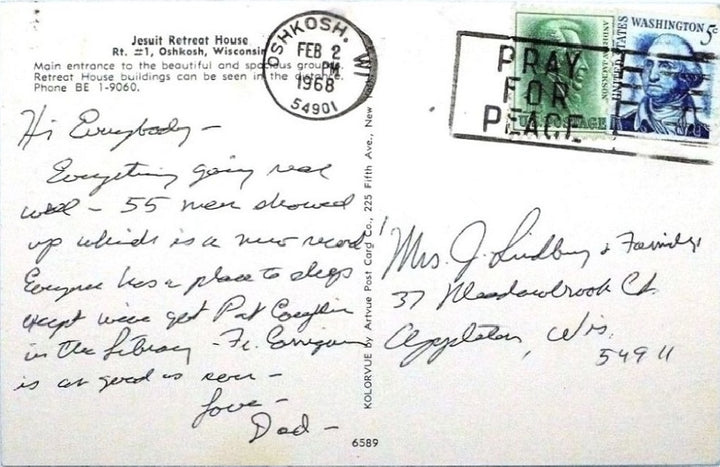 Jesuit Retreat House
Rt. #1, Oshkosh, Wisconsin
Main entrance to the beautiful and spacious grounds.
Retreat House buildings can be seen in the distance.
Phone BE 1-9060.
OSHKOSH, WI
FEB 2
PM
1968
54901
PRAY
FOR
PEACE
ANDREW JACKSON
U.S. POSTAGE
UNITED STATES
WASHINGTON 5c
Hi Everybody -
Everything going real
well - 55 men showed
up which is a new record!
Everyone has a place to sleep
except we've got Pat Coughlin
in the Library - Fr. Corrigan
is as good as ever -
Love -
Dad -
KOLORVUE by Artvue Post Card Co., 225 Fifth Ave., New York
Mrs. J. Lindberg & Family
37 Meadowbrook Ct.
Appleton, Wis.
54911
6589